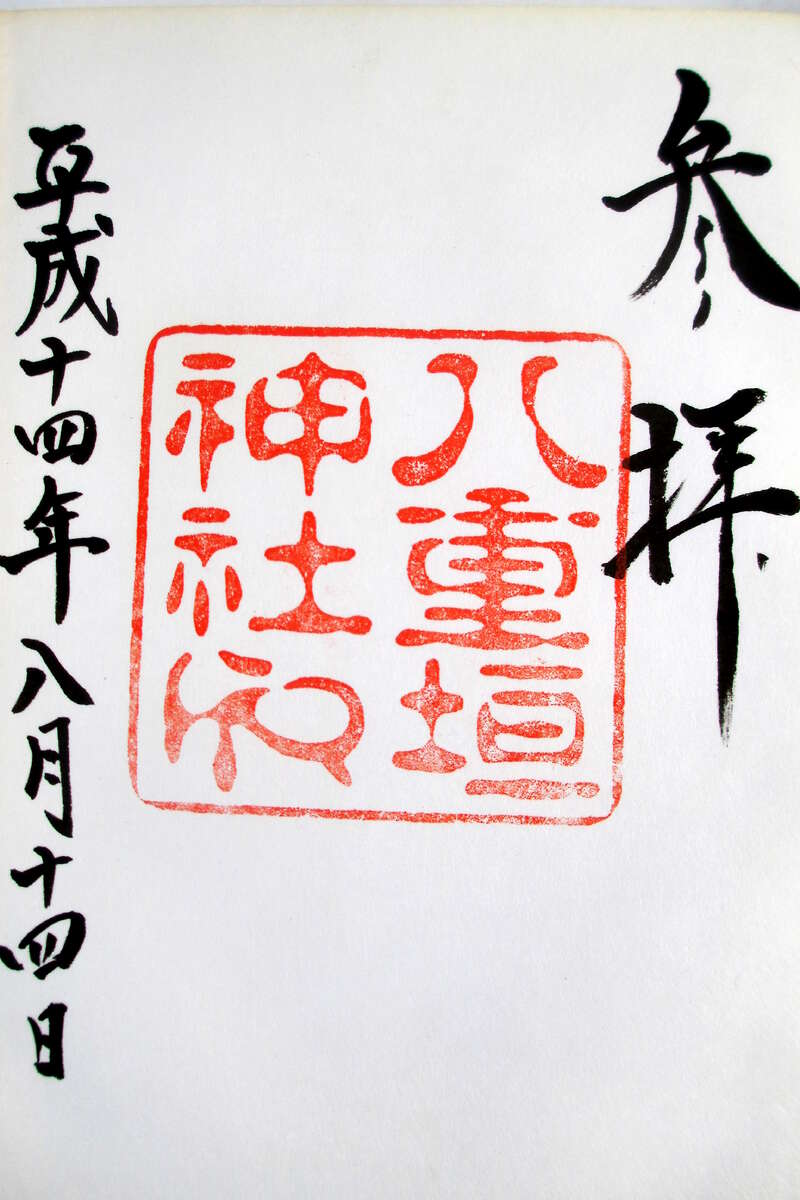 参拝
八重垣
神社印
平成十四年八月十四日